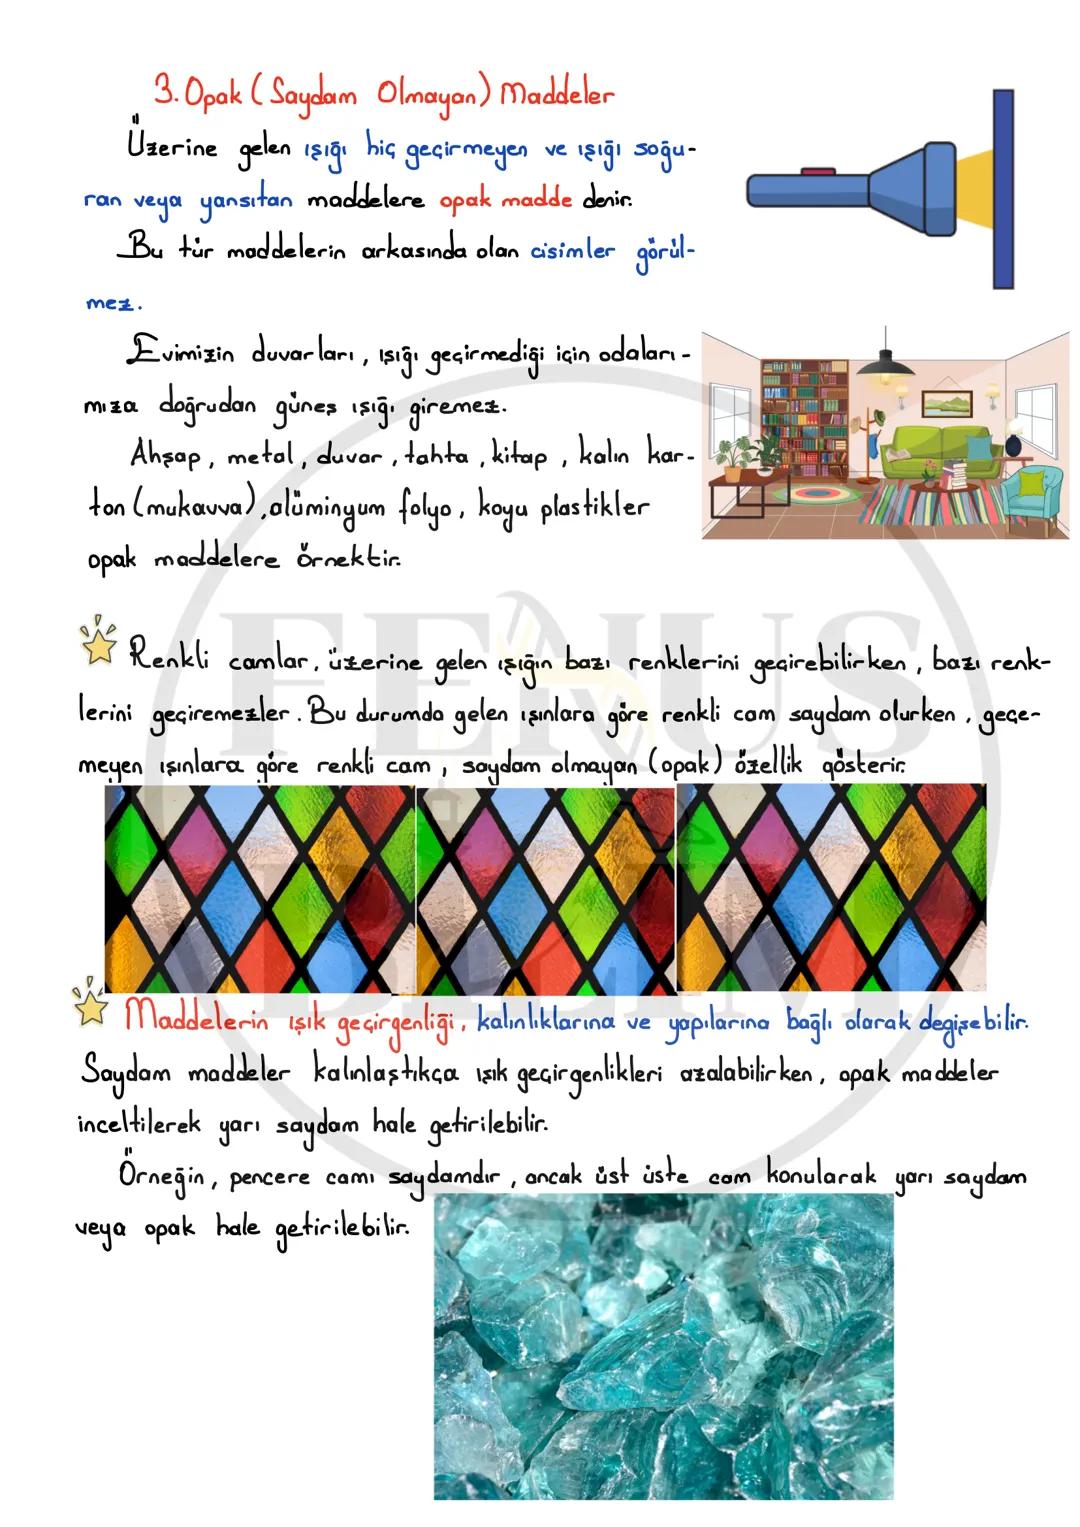 3. Opak (Saydam Olmayan) Maddeler
Üzerine gelen ışığı hiç geçirmeyen ve ışığı soğu-
ran veya yansıtan maddelere opak madde denir.
Bu tür maddelerin arkasında olan cisimler görül-
mez.
Evimizin duvarları, ışığı geçirmediği için odaları-
mıza doğrudan güneş ışığı giremez.
Ahşap, metal, duvar, tahta, kitap, kalın kar-
ton (mukavva), alüminyum folyo, koyu plastikler
opak maddelere örnektir.
Renkli camlar, üzerine gelen ışığın bazı renklerini geçirebilirken, bazı renk-
lerini geçiremezler. Bu durumda gelen ışınlara göre renkli cam saydam olurken, geçe-
meyen ışınlara göre renkli cam, saydam olmayan (opak) özellik gösterir.
Maddelerin ışık geçirgenliği, kalınlıklarına ve yapılarına bağlı olarak değişebilir.
Saydam maddeler kalınlaştıkça ışık geçirgenlikleri azalabilirken, opak maddeler
inceltilerek yarı saydam hale getirilebilir.
Örneğin, pencere camı saydamdır, ancak üst üste cam konularak yarı saydam
veya opak hale getirilebilir.
FENUS
BİLİM